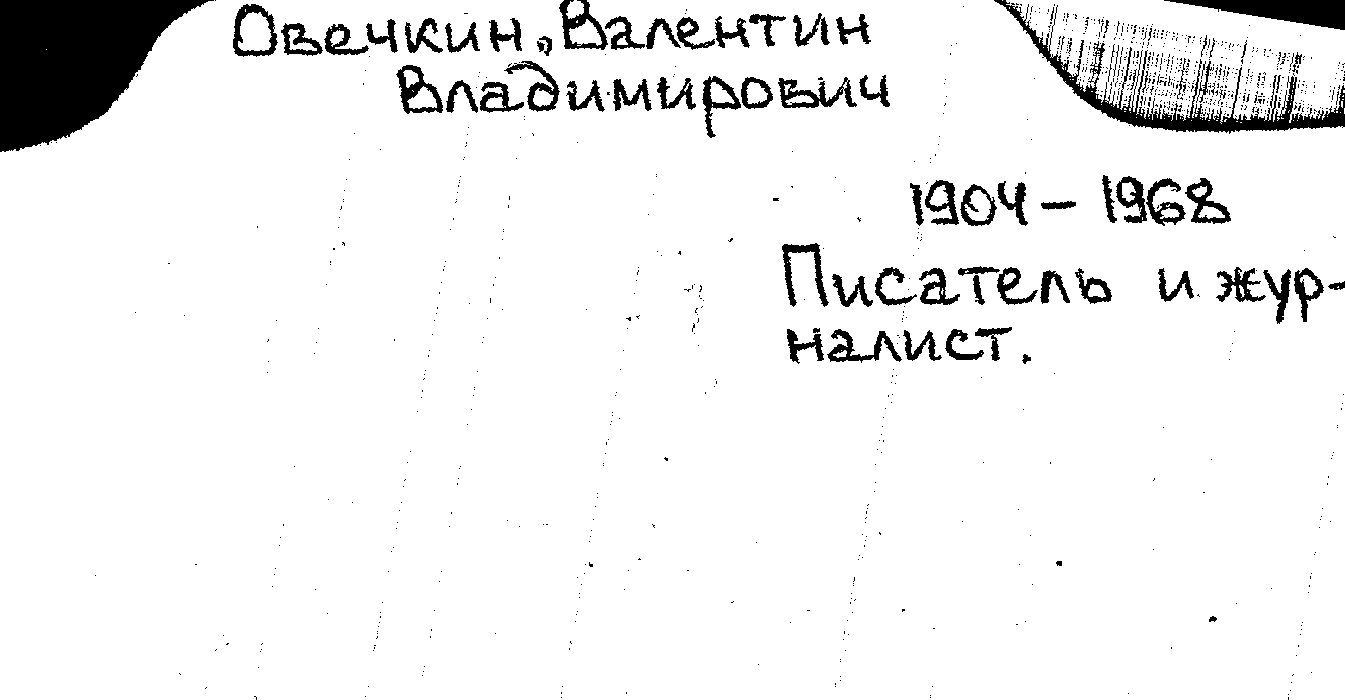 Овечкин, Валентин
Владимирович
1904 – 1968
Писатель и жур-
налист.